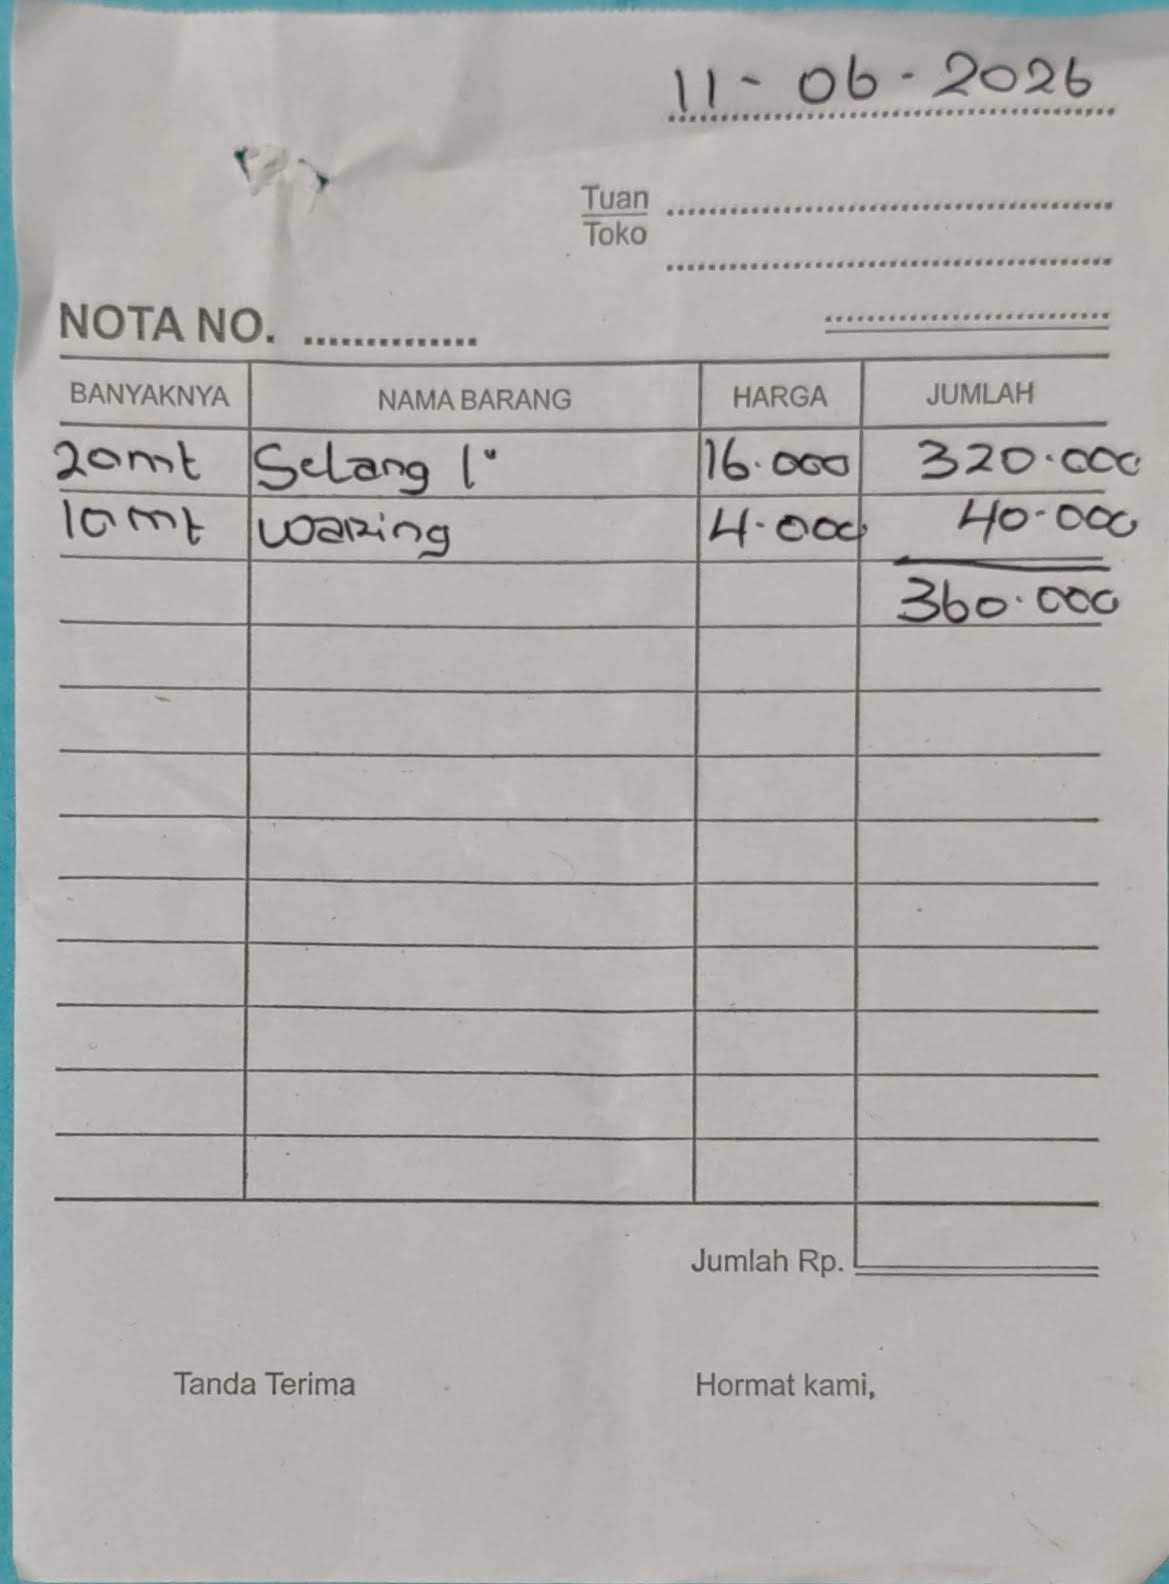 11-06-2026
Tuan
Toko
NOTA NO.
BANYAKNYA NAMA BARANG HARGA JUMLAH
20mt Selang 1" 16.000 320.000
10mt waring 4.000 40.000
360.000
Jumlah Rp.
Tanda Terima Hormat kami,